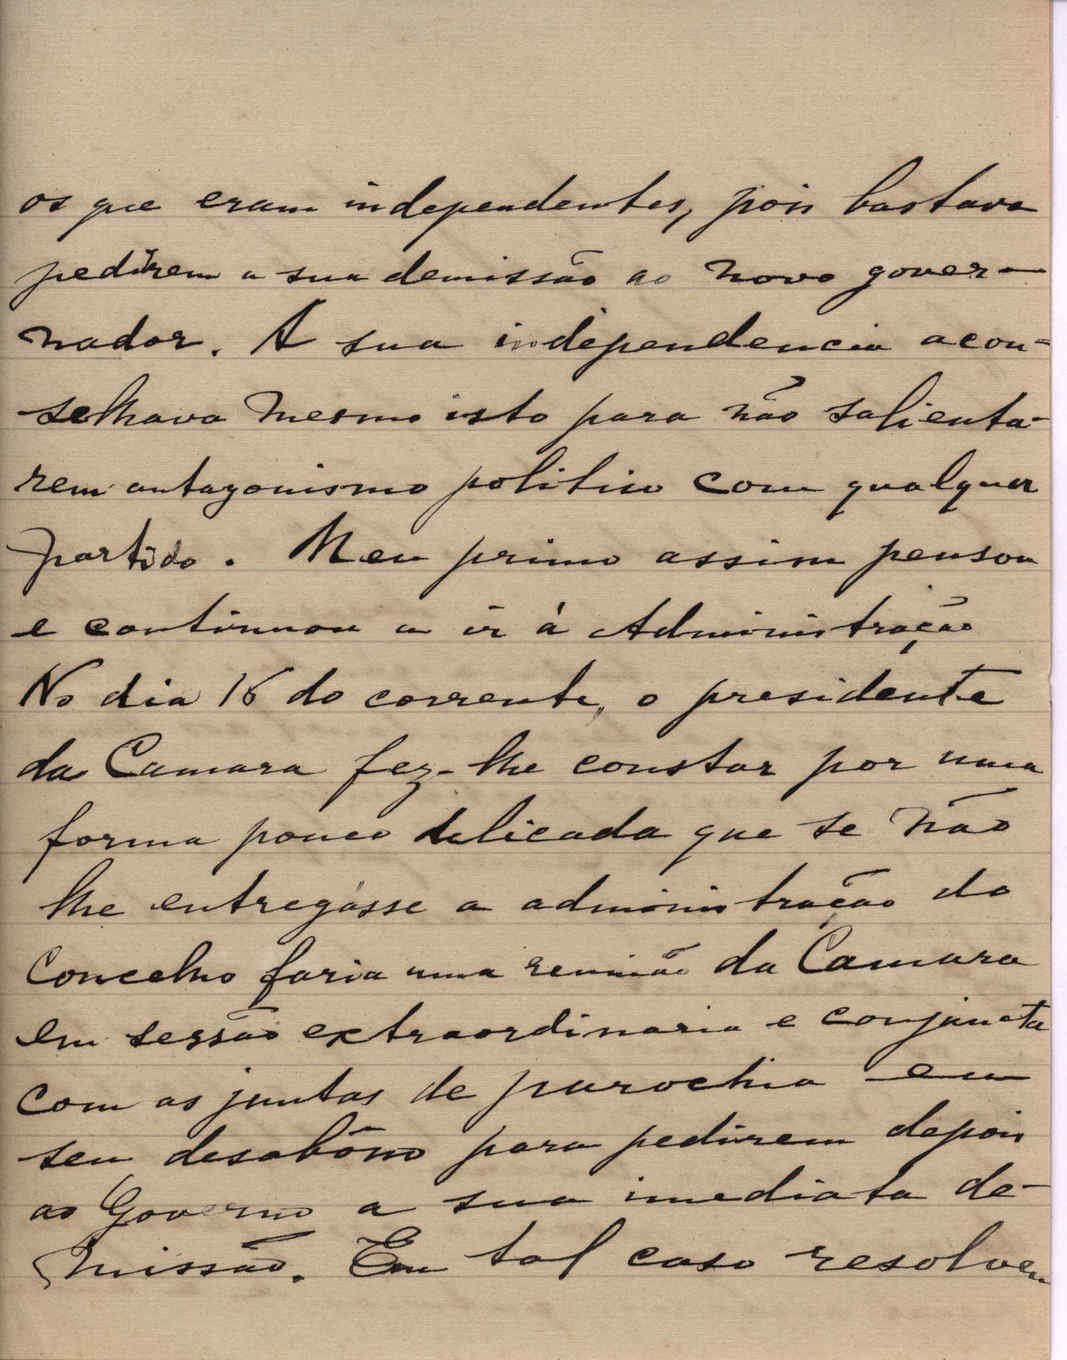 os que eram independentes, pois bastava
pedirem a sua demissão ao novo gover-
nador. A sua independencia acon-
selhava mesmo isto para não salienta-
rem antagonismo politico com qualquer
partido. Meu primo assim pensou
e continuou a ir á Administração
No dia 16 do corrente, o presidente
da Camara fez-lhe constar por uma
forma pouco delicada que se não
lhe entregásse a administração do
Concelho faria uma reunião da Camara
em sessão extraordinaria e conjuncta
com as juntas de parochia em
seu desabôno para pedirem depois
ao Governo a sua imediata de-
missão. Em tal caso resolveu